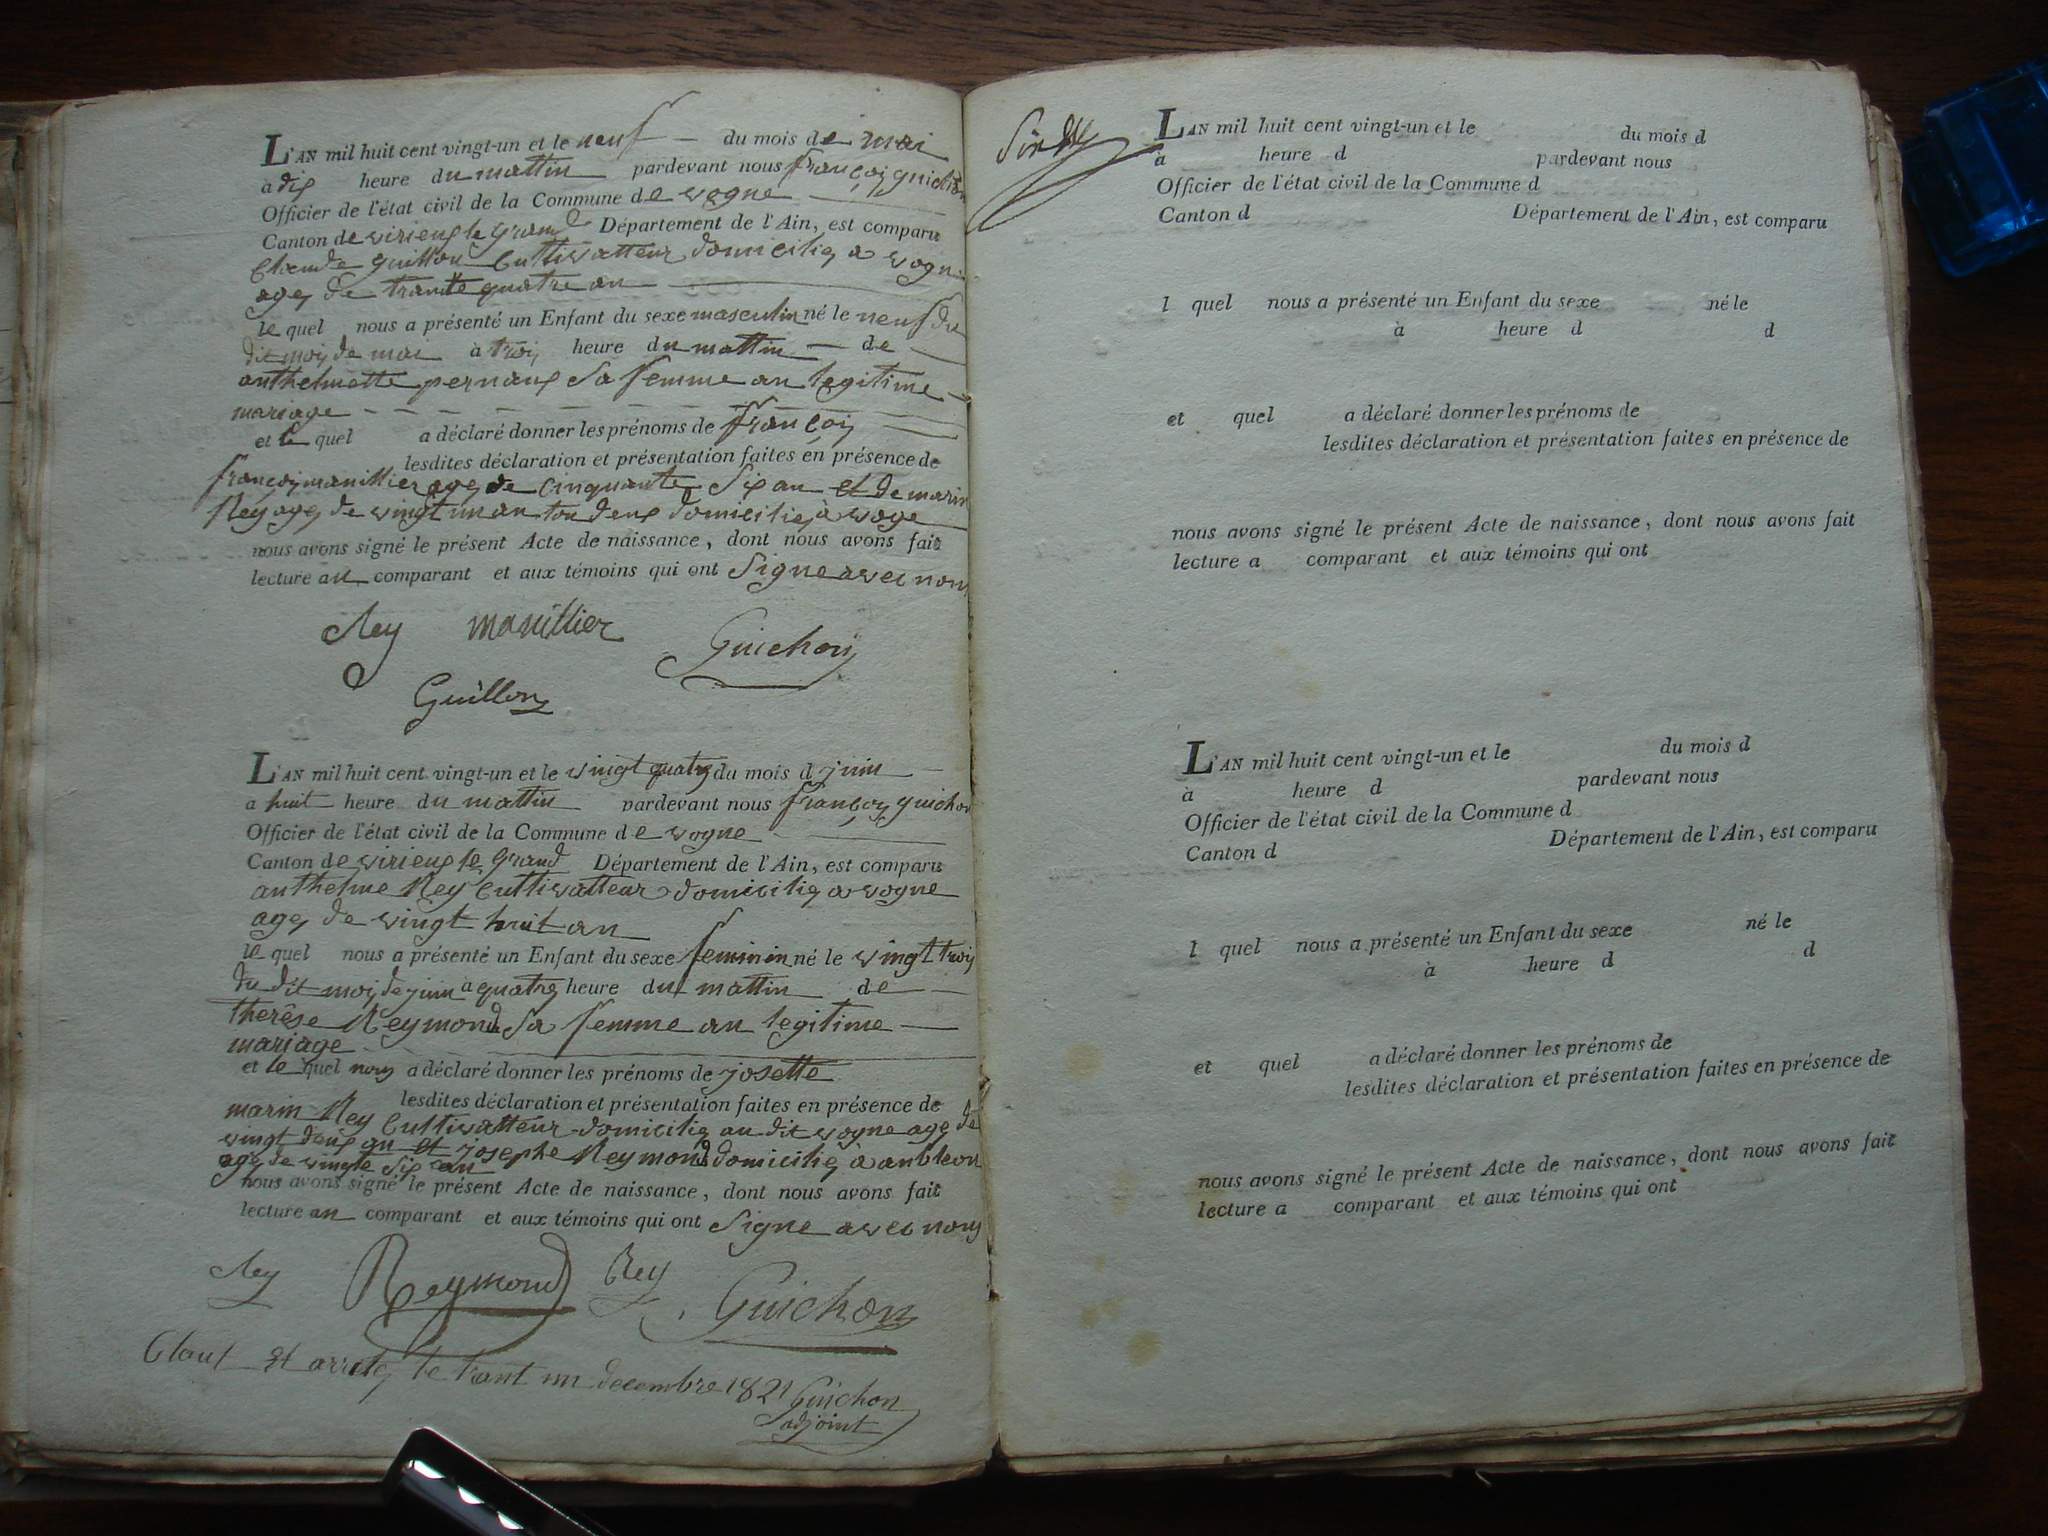 L'AN mil huit cent vingt-un et le neuf du mois de mai
à dix heure du mattin pardevant nous françois guichon
Officier de l'état civil de la Commune de vogne
Canton de virieux le grand Département de l'Ain, est comparu
Claude guillon Cultivatteur domicilie a vogne
age de trante quatre an
le quel nous a présenté un Enfant du sexe masculin né le neuf du
dit mois de mai à trois heure du mattin de
anthelmette pernaux Sa femme an legitime
mariage
et le quel a déclaré donner les prénoms de françois
lesdites déclaration et présentation faites en présence de
françois manillier age de cinquante Six an et de marin
Rey age de vingt un an tou deux domicilie à voge
nous avons signé le présent Acte de naissance, dont nous avons fait
lecture au comparant et aux témoins qui ont Signe avec nous
Rey manillier Guichon
Guillon
L'AN mil huit cent vingt-un et le vingt quatre du mois d juin
a huit heure du mattin pardevant nous françois guichon
Officier de l'état civil de la Commune de vogne
Canton de virieux le Grand Département de l'Ain, est comparu
anthelme Rey Cultivatteur domicilie a vogne
age de vingt huit an
le quel nous a présenté un Enfant du sexe feminin né le vingt trois
du dit mois de juin a quatre heure du mattin de
therèse Reymond Sa femme an legitime
mariage
et le quel nous a déclaré donner les prénoms de josette
lesdites déclaration et présentation faites en présence de
marin Rey Cultivatteur domicilie au dit vogne age de
vingt deux an et josephe Reymond domicilie à anbleon
age de vingte six an
nous avons signé le présent Acte de naissance, dont nous avons fait
lecture au comparant et aux témoins qui ont Signe avec nous
Rey Reymond Rey Guichon
Clout et arrete le trant un decembre 1821 Guichon
adjoint
L'AN mil huit cent vingt-un et le du mois d
à heure d pardevant nous
Officier de l'état civil de la Commune d
Canton d Département de l'Ain, est comparu
l quel nous a présenté un Enfant du sexe né le
à heure d d
et quel a déclaré donner les prénoms de
lesdites déclaration et présentation faites en présence de
nous avons signé le présent Acte de naissance, dont nous avons fait
lecture a comparant et aux témoins qui ont
L'AN mil huit cent vingt-un et le du mois d
à heure d pardevant nous
Officier de l'état civil de la Commune d
Canton d Département de l'Ain, est comparu
l quel nous a présenté un Enfant du sexe né le
à heure d d
et quel a déclaré donner les prénoms de
lesdites déclaration et présentation faites en présence de
nous avons signé le présent Acte de naissance, dont nous avons fait
lecture a comparant et aux témoins qui ont